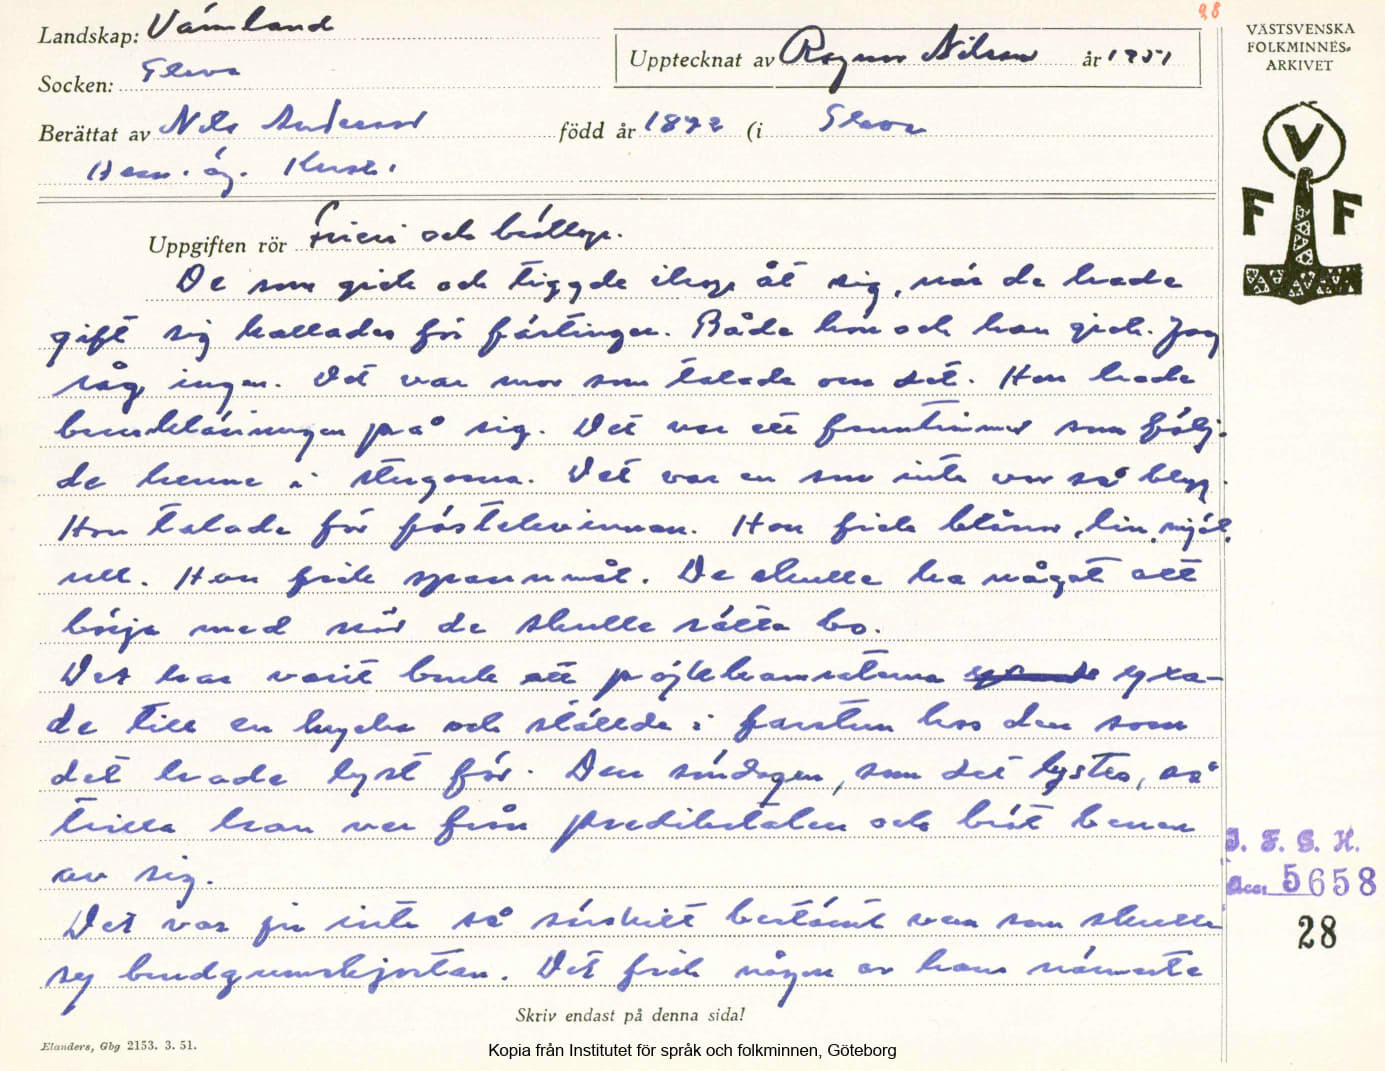 98
Landskap: Värmland
Upptecknat av Ragnar Nilson år 1951
VÄSTSVENSKA
FOLKMINNES-
ARKIVET
Socken: Glava
Berättat av Nils Anderson född år 1872 (i Glava
Hem. äg.
V
F F
Uppgiften rör Frieri och bröllop.
De som gick och tiggde ihop åt sig, när de hade
gift sig kallades för fästingar. Både hon och han gick. Jag
såg ingen. Det var mor som talade om det. Hon hade
brudklänningen på sig. Det var ett fruntimmer som följ-
de henne i stugorna. Det var en som inte var så blyg.
Hon talade för fästekvinnan. Hon fick blånor, lin, mjöl,
ull. Hon fick spannmål. De skulle ha något att
börja med när de skulle sätta bo.
Det har varit bruk att pojkkamraterna yxa-
de till en krycka och ställde i farstun hos den som
det hade lyst för. Den söndagen, som det lystes, så
trilla han ner från predikstolen och bröt benen
av sig.
Det var ju inte så särskilt bestämt vem som skulle
sy brudgumskjortan. Det fick någon av hans närmaste
I. F. G. H.
Acc. 5658
28
Skriv endast på denna sida!
Elanders, Gbg 2153. 3. 51.
Kopia från Institutet för språk och folkminnen, Göteborg